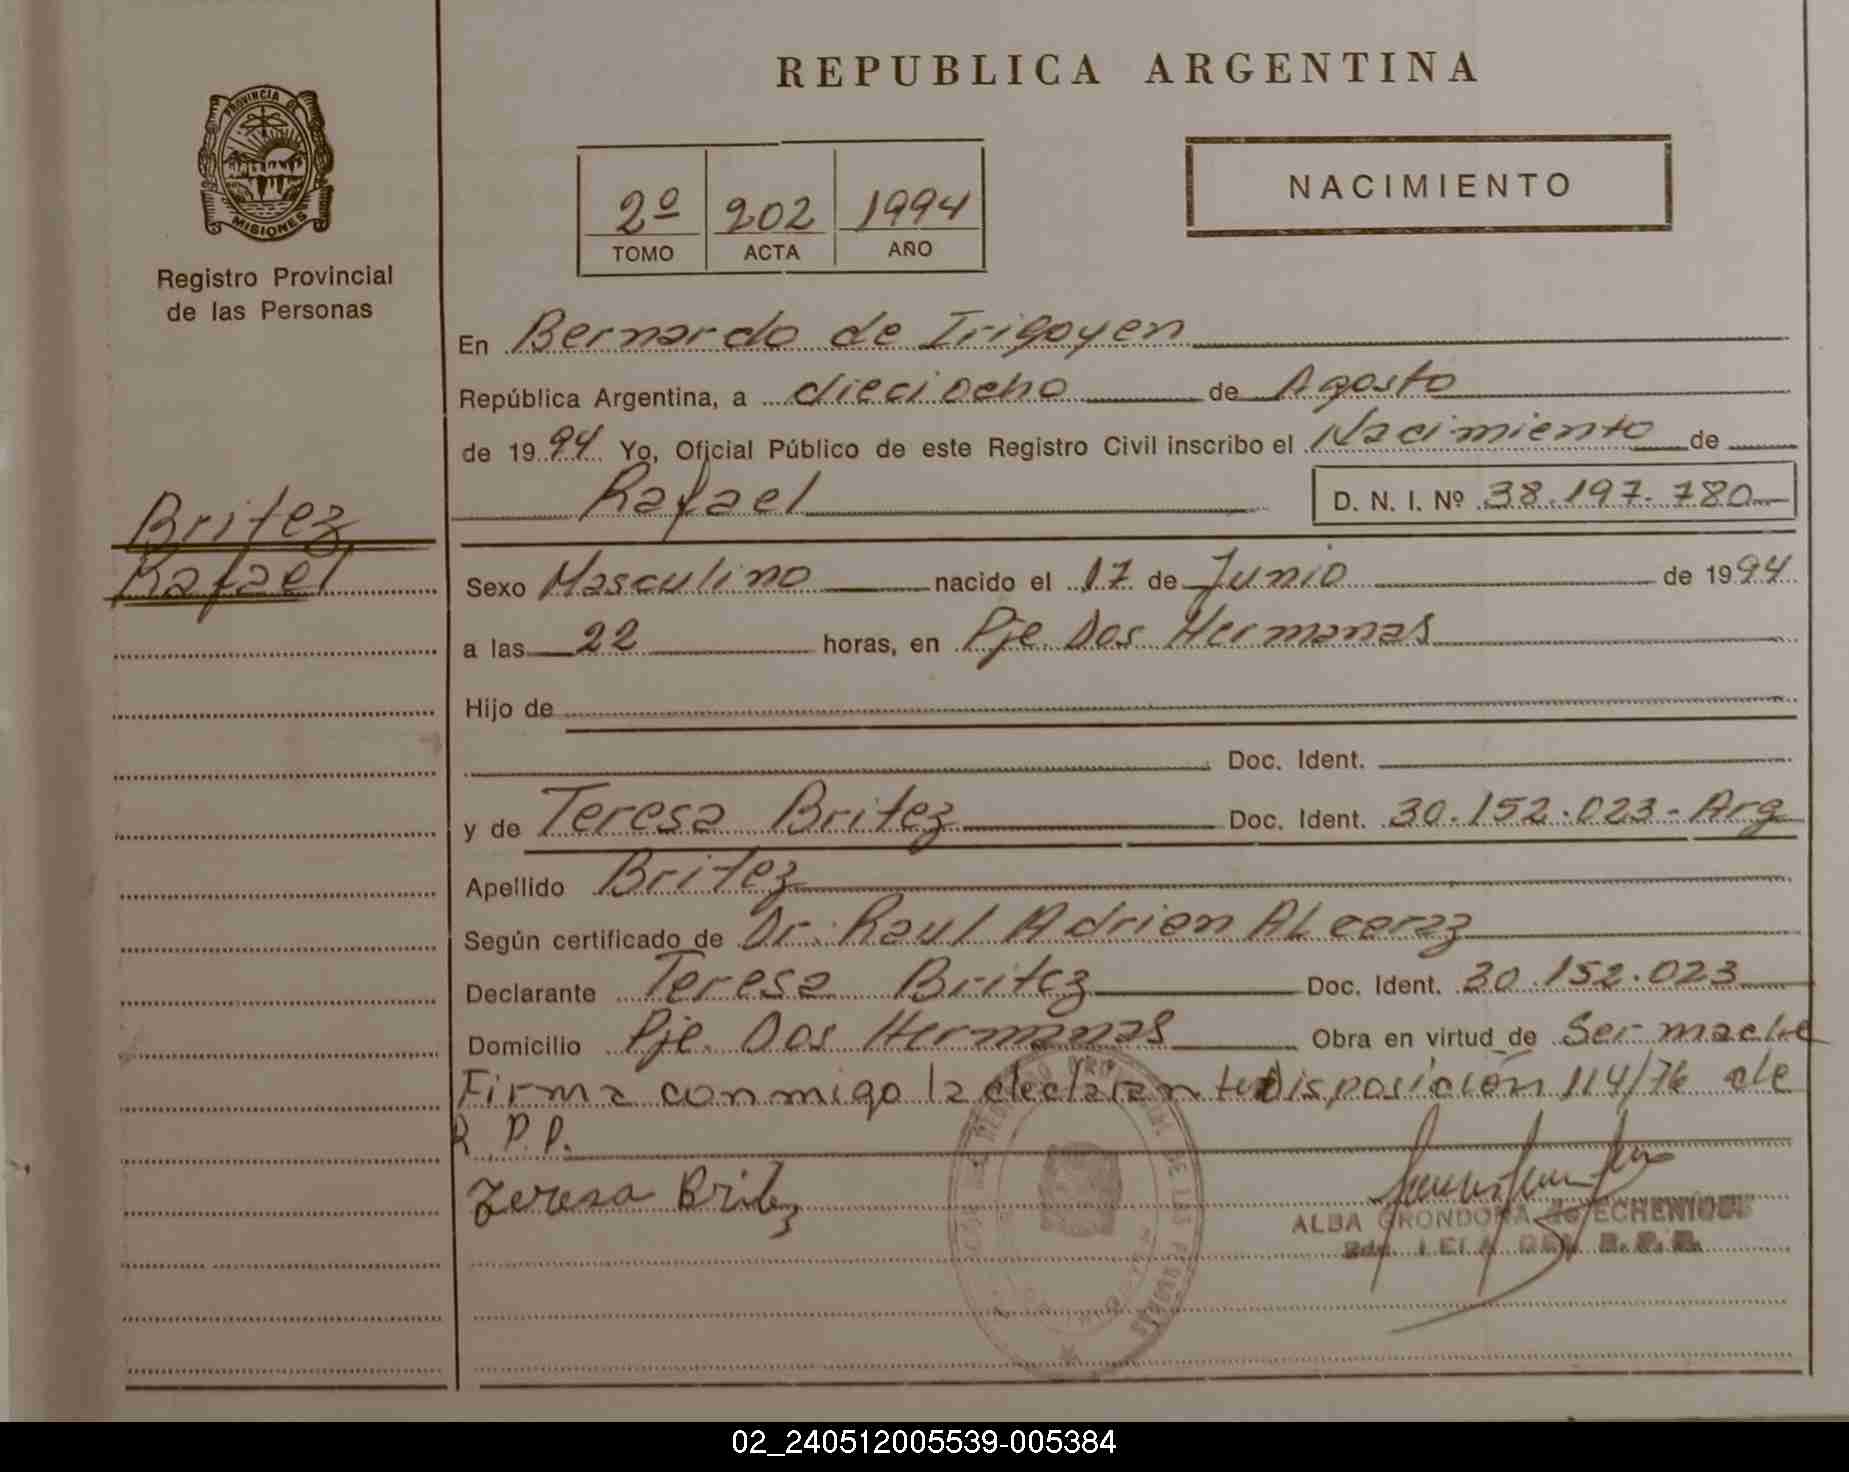 PROVINCIA DE
MISIONES
Registro Provincial
de las Personas
Britez
Rafael
REPUBLICA ARGENTINA
2º 202 1994
TOMO ACTA AÑO
NACIMIENTO
En Bernardo de Irigoyen
República Argentina, a dieciocho de Agosto
de 1994 Yo, Oficial Público de este Registro Civil inscribo el Nacimiento de
Rafael D. N. I. Nº 38.197.780
Sexo Masculino nacido el 17 de Junio de 1994
a las 22 horas, en Pje Dos Hermanas
Hijo de
Doc. Ident.
y de Teresa Britez Doc. Ident. 30.152.023-Arg
Apellido Britez
Según certificado de Dr. Raul Adrien ALcaraz
Declarante Teresa Britez Doc. Ident. 30.152.023
Domicilio Pje. Dos Hermanas Obra en virtud de Ser madre
Firma conmigo la declarante Disposición 114/76 de
R.P.P.
Teresa Britez
ALBA GRONDONA de ECHENIQUE
02_240512005539-005384